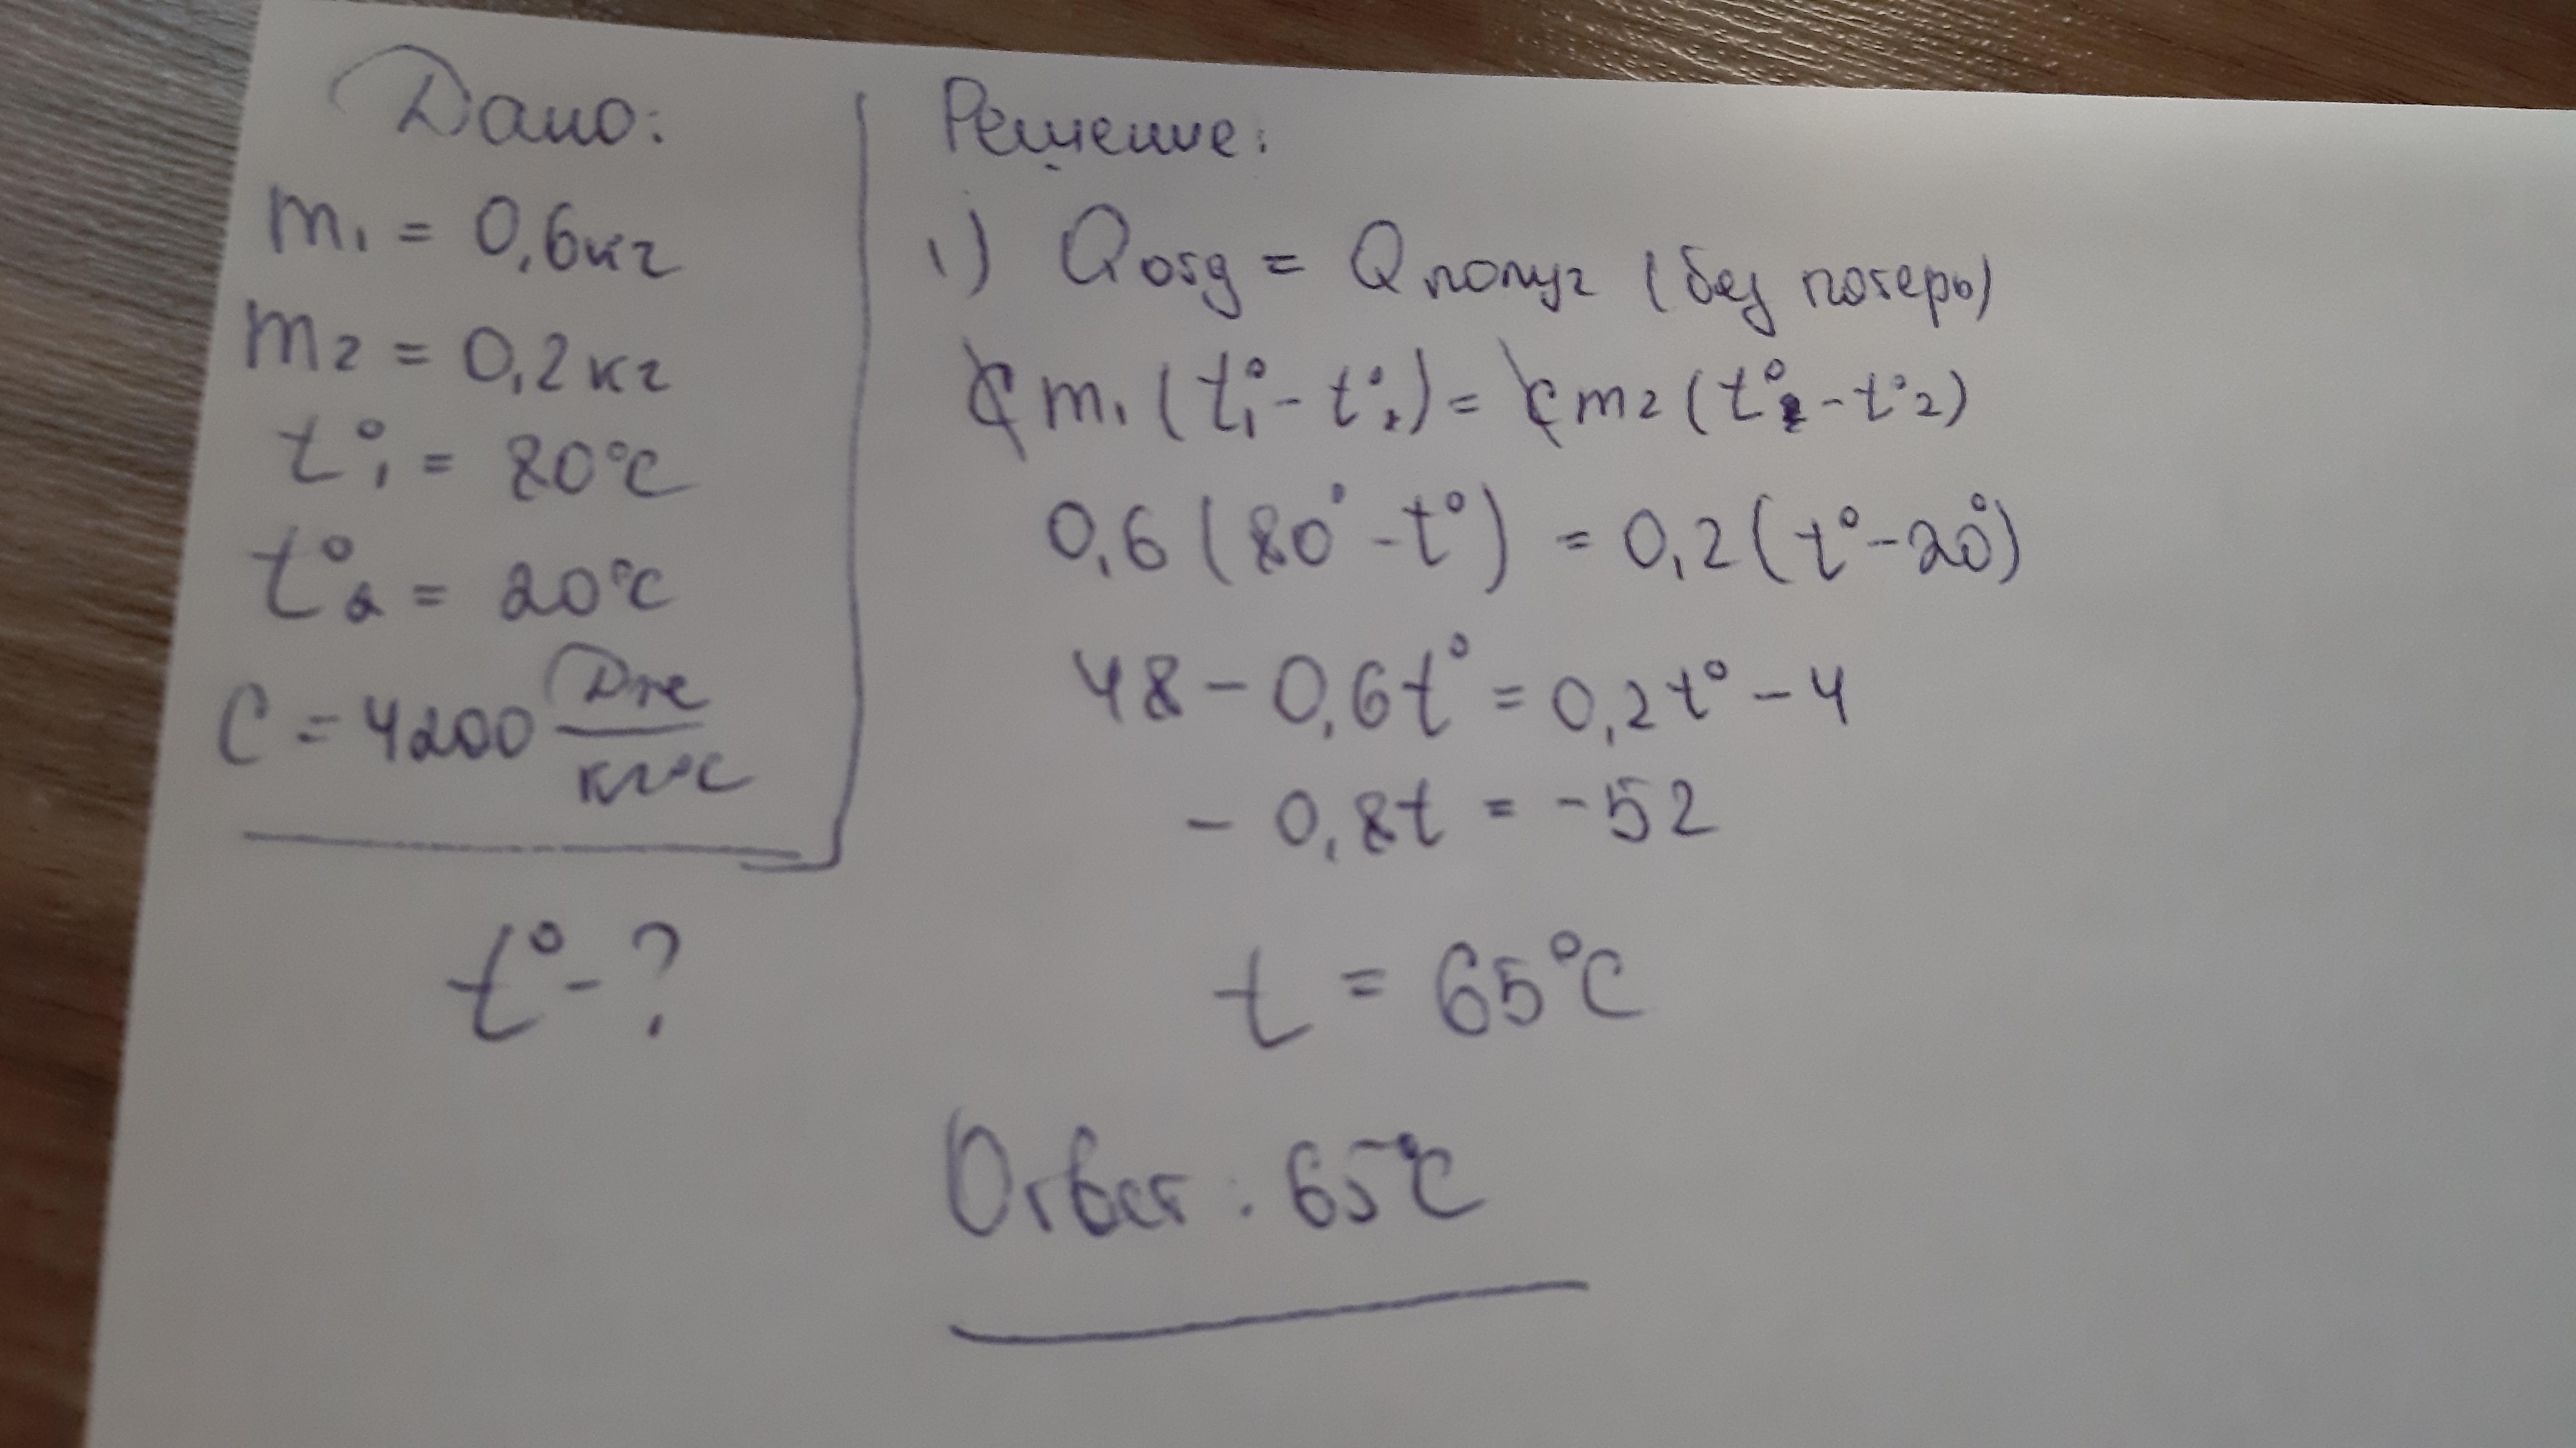 Дано:
m₁ = 0,6кг
m₂ = 0,2кг
t°₁ = 80°C
t°₂ = 20°C
C = 4200 Дж/кг°C
t° - ?
Решение:
1) Qотд = Qполуч (без потерь)
c m₁ (t°₁ - t°₂) = c m₂ (t°₂ - t°₂)
0,6 (80° - t°) = 0,2 (t° - 20°)
48 - 0,6t° = 0,2t° - 4
- 0,8t = -52
t = 65°C
Ответ: 65°C